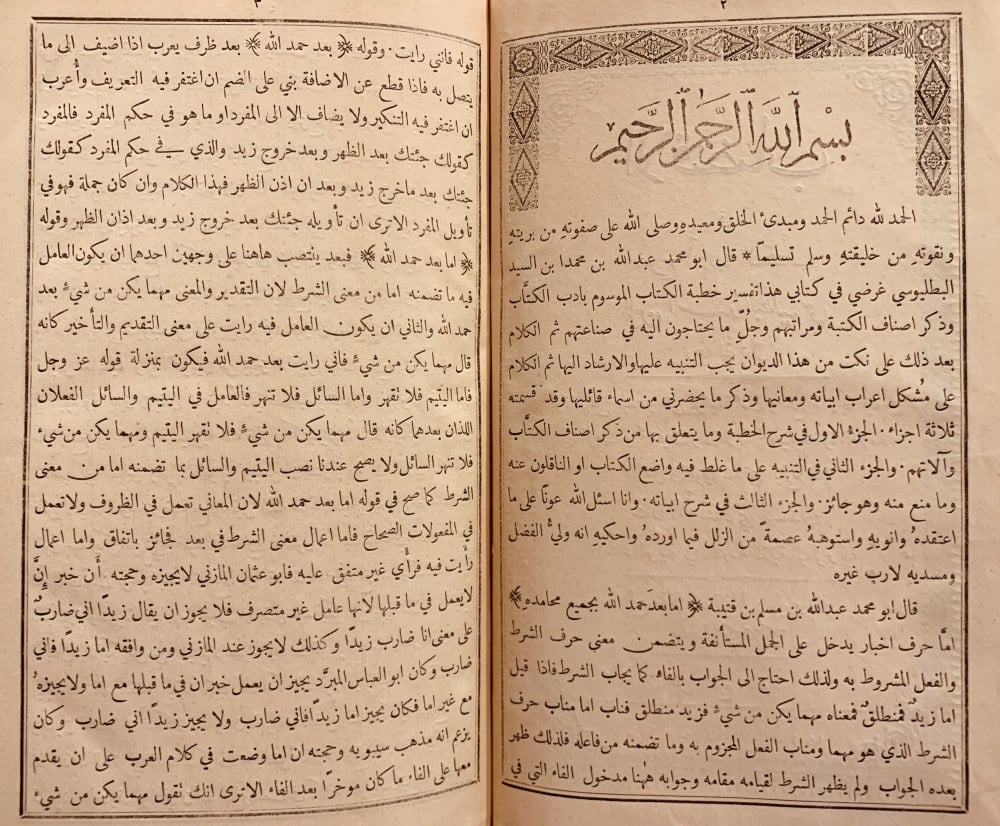 ٢
بسم الله الرحمن الرحيم
الحمد لله دائم الحمد ومبدئ الخلق ومعيده وصلى الله على صفوتهِ من بريتهِ
ونقوتهِ من خليقتهِ وسلم تسليماً * قال ابو محمد عبدالله بن محمدا بن السيد
البطليوسي غرضي في كتابي هذا تفسير خطبة الكتاب الموسوم بادب الكتَّاب
وذكر اصناف الكتبة ومراتبهم وجُلِّ ما يحتاجون اليه في صناعتهم ثم الكلام
بعد ذلك على نكت من هذا الديوان يجب التنبيه عليها والارشاد اليها ثم الكلام
على مُشكل اعراب ابياته ومعانيها وذكر ما يحضرني من اسماء قائليها وقد قسمته
ثلاثة اجزاء. الجزء الاول في شرح الخطبة وما يتعلق بها من ذكر اصناف الكتَّاب
وآلاتهم. والجزء الثاني في التنبيه على ما غلط فيه واضع الكتاب او الناقلون عنه
وما منع منه وهو جائز. والجزء الثالث في شرح ابياته. وانا اسئل الله عوناً على ما
اعتقدهُ وانويهِ واستوهبهُ عصمةً من الزلل فيما اوردهُ واحكيهِ انه وليُّ الفضل
ومسديه لارب غيره
قال ابو محمد عبدالله بن مسلم بن قتيبة ﴿ اما بعدَ حمد الله بجميع محامده ﴾
امَّا حرف اخبار يدخل على الجمل المستأنفة ويتضمن معنى حرف الشرط
والفعل المشروط به ولذلك احتاج الى الجواب بالفاء كما يجاب الشرط فاذا قيل
اما زيدٌ فمنطلقٌ فمعناه مهما يكن من شيءٍ فزيد منطلق فناب اما مناب حرف
الشرط الذي هو مهما ومناب الفعل المجزوم به وما تضمنه من فاعله فلذلك ظهر
بعده الجواب ولم يظهر الشرط لقيامه مقامه وجوابه ههنا مدخول الفاء التي في
٣
قوله فانني رايت. وقوله ﴿ بعد حمد الله ﴾ بعد ظرف يعرب اذا اضيف الى ما
يتصل به فاذا قطع عن الاضافة بني على الضم ان اغتفر فيه التعريف وأُعرب
ان اغتفر فيه التنكير ولا يضاف الا الى المفرد او ما هو في حكم المفرد فالمفرد
كقولك جئتك بعد الظهر وبعد خروج زيد والذي في حكم المفرد كقولك
جئتك بعد ما خرج زيد وبعد ان اذن الظهر فهذا الكلام وان كان جملة فهو في
تأويل المفرد الا ترى ان تأويله جئتك بعد خروج زيد وبعد اذان الظهر وقوله
﴿ اما بعد حمد الله ﴾ فبعد ينتصب هاهنا على وجهين احدهما ان يكون العامل
فيه ما تضمنه اما من معنى الشرط لان التقدير والمعنى مهما يكن من شيءٍ بعد
حمد الله والثاني ان يكون العامل فيه رايت على معنى التقديم والتأخير كانه
قال مهما يكن من شيءٍ فاني رايت بعد حمد الله فيكون بمنزلة قوله عز وجل
فاما اليتيم فلا تقهر واما السائل فلا تنهر فالعامل في اليتيم والسائل الفعلان
اللذان بعدهما كانه قال مهما يكن من شيءٍ فلا تقهر اليتيم ومهما يكن من شيء
فلا تنهر السائل ولا يصح عندنا نصب اليتيم والسائل بما تضمنه اما من معنى
الشرط كما صح في قوله اما بعد حمد الله لان المعاني تعمل في الظروف ولا تعمل
في المفعولات الصحاح فاما اعمال معنى الشرط في بعد فجائز باتفاق واما اعمال
رأيت فيه فرأي غير متفق عليه فابو عثمان المازني لا يجيزه وحجته أن خبر إنَّ
لا يعمل في ما قبلها لانها عامل غير متصرف فلا يجوز ان يقال زيداً اني ضاربٌ
على معنى انا ضارب زيداً وكذلك لا يجوز عند المازني ومن وافقه اما زيداً فاني
ضارب وكان ابو العباس المبرَّد يجيز ان يعمل خبر ان في ما قبلها مع اما ولا يجيزهُ
مع غير اما فكان يجيز اما زيداً فاني ضارب ولا يجيز زيداً اني ضارب وكان
يزعم انه مذهب سيبويه وحجته ان اما وضعت في كلام العرب على ان يقدم
معها على الفاء ما كان موخراً بعد الفاء الا ترى انك تقول مهما يكن من شيءٍ